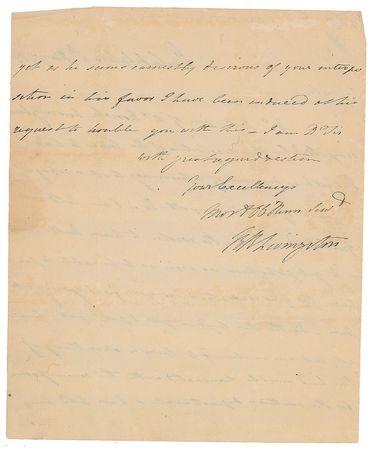 yet as he seems earnestly desirous of your interpo
sition in his favor I have been induced at his
request to trouble you with this – I am Dr Sir
with great regard & esteem
Your Excellencys
Most Ob Humn Servd
RR Livingston